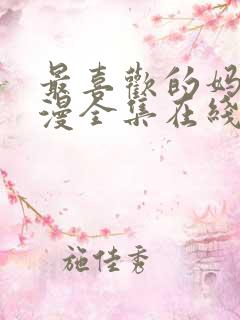 最喜歡的妈
漫全集在綫
施佳秀